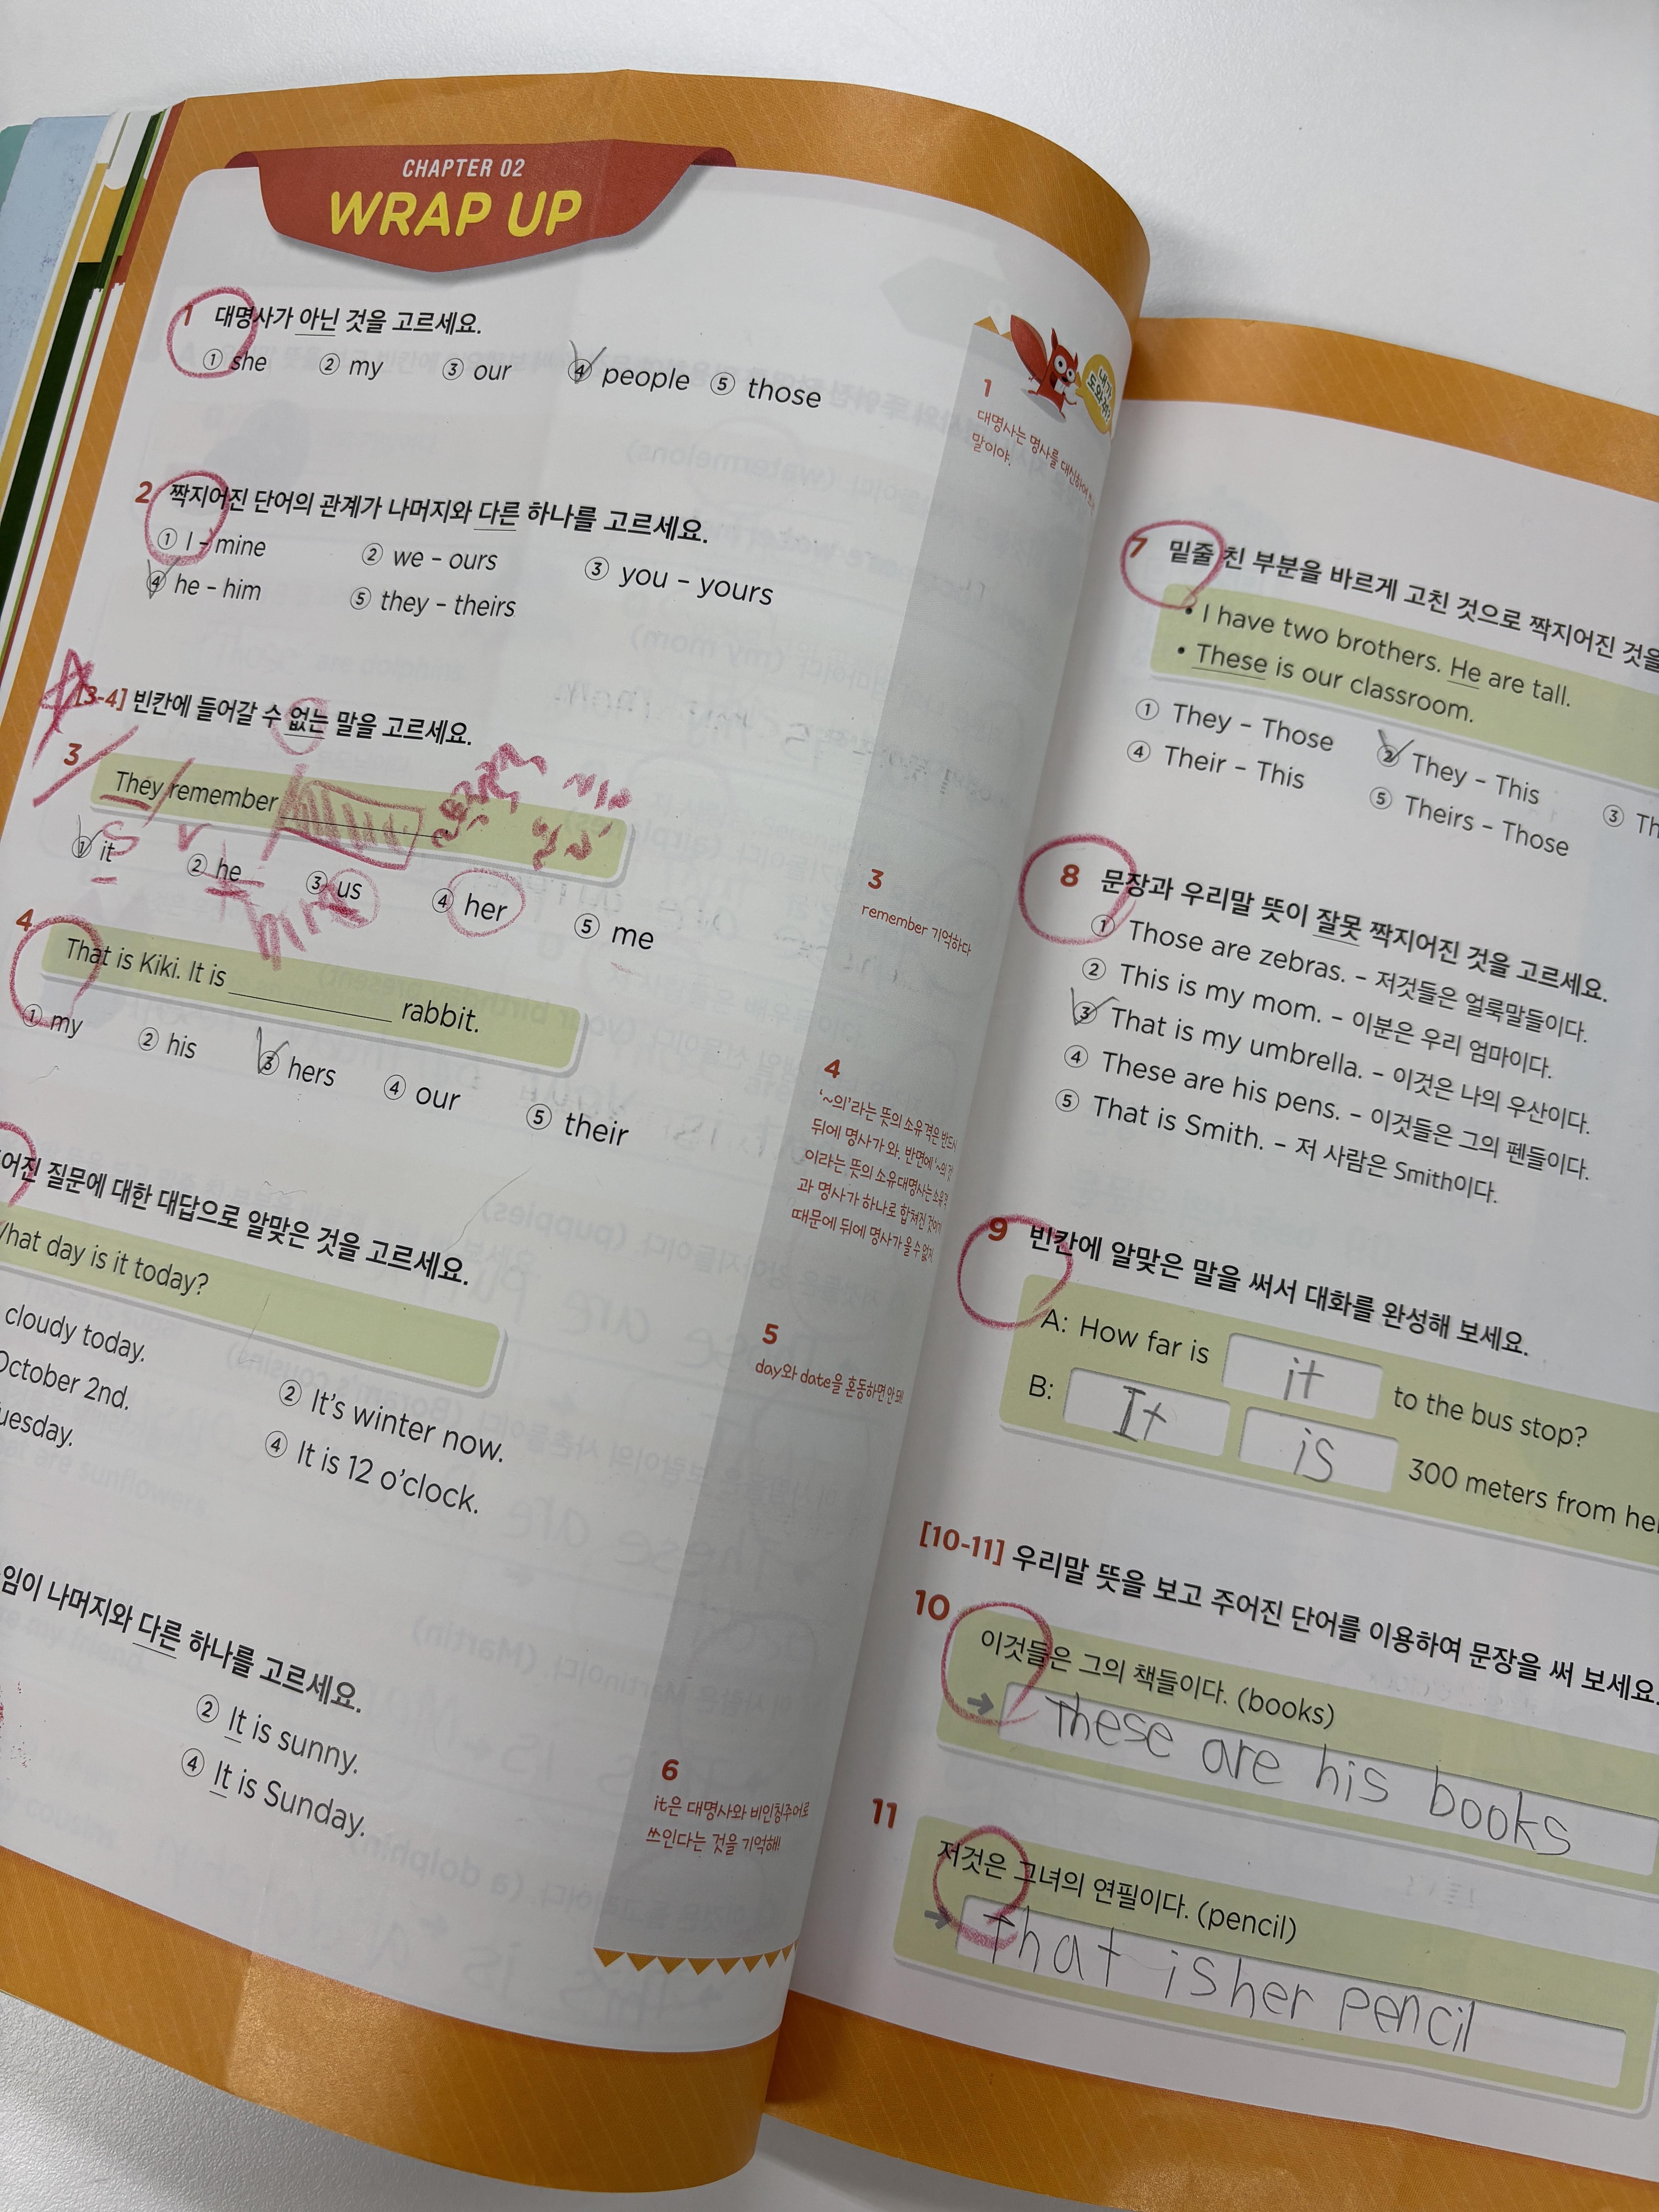 CHAPTER 02
WRAP UP
1 대명사가 아닌 것을 고르세요.
① she ② my ③ our ④ people ⑤ those
2 짝지어진 단어의 관계가 나머지와 다른 하나를 고르세요.
① I – mine ② we – ours ③ you – yours
④ he – him ⑤ they – theirs
[3-4] 빈칸에 들어갈 수 없는 말을 고르세요.
3
They remember
① it ② he ③ us ④ her ⑤ me
4
That is Kiki. It is rabbit.
① my ② his ③ hers ④ our ⑤ their
질문에 대한 대답으로 알맞은 것을 고르세요.
What day is it today?
cloudy today.
② It's winter now.
October 2nd.
④ It is 12 o'clock.
나머지와 다른 하나를 고르세요.
② It is sunny.
④ It is Sunday.
내가
도와줘?
1
대명사는 명사를 대신하여
말이야.
3
remember 기억하다
4
'~의'라는 뜻의 소유격은 반드시
뒤에 명사가 와. 반면에 '~의 것'
이라는 뜻의 소유대명사는 소유격
과 명사가 하나로 합쳐진 것이기
때문에 뒤에 명사가 올 수 없지.
5
day와 date을 혼동하면 안 돼!
6
it은 대명사와 비인칭주어로
쓰인다는 것을 기억해!
7 밑줄 친 부분을 바르게 고친 것으로 짝지어진 것을
• I have two brothers. He are tall.
• These is our classroom.
① They – Those ② They – This ③
④ Their – This ⑤ Theirs – Those
8 문장과 우리말 뜻이 잘못 짝지어진 것을 고르세요.
① Those are zebras. – 저것들은 얼룩말들이다.
② This is my mom. – 이분은 우리 엄마이다.
③ That is my umbrella. – 이것은 나의 우산이다.
④ These are his pens. – 이것들은 그의 펜들이다.
⑤ That is Smith. – 저 사람은 Smith이다.
9 빈칸에 알맞은 말을 써서 대화를 완성해 보세요.
A: How far is it to the bus stop?
B: It is 300 meters from
[10-11] 우리말 뜻을 보고 주어진 단어를 이용하여 문장을 써 보세요.
10
이것들은 그의 책들이다. (books)
➔ These are his books
11
저것은 그녀의 연필이다. (pencil)
➔ That is her pencil